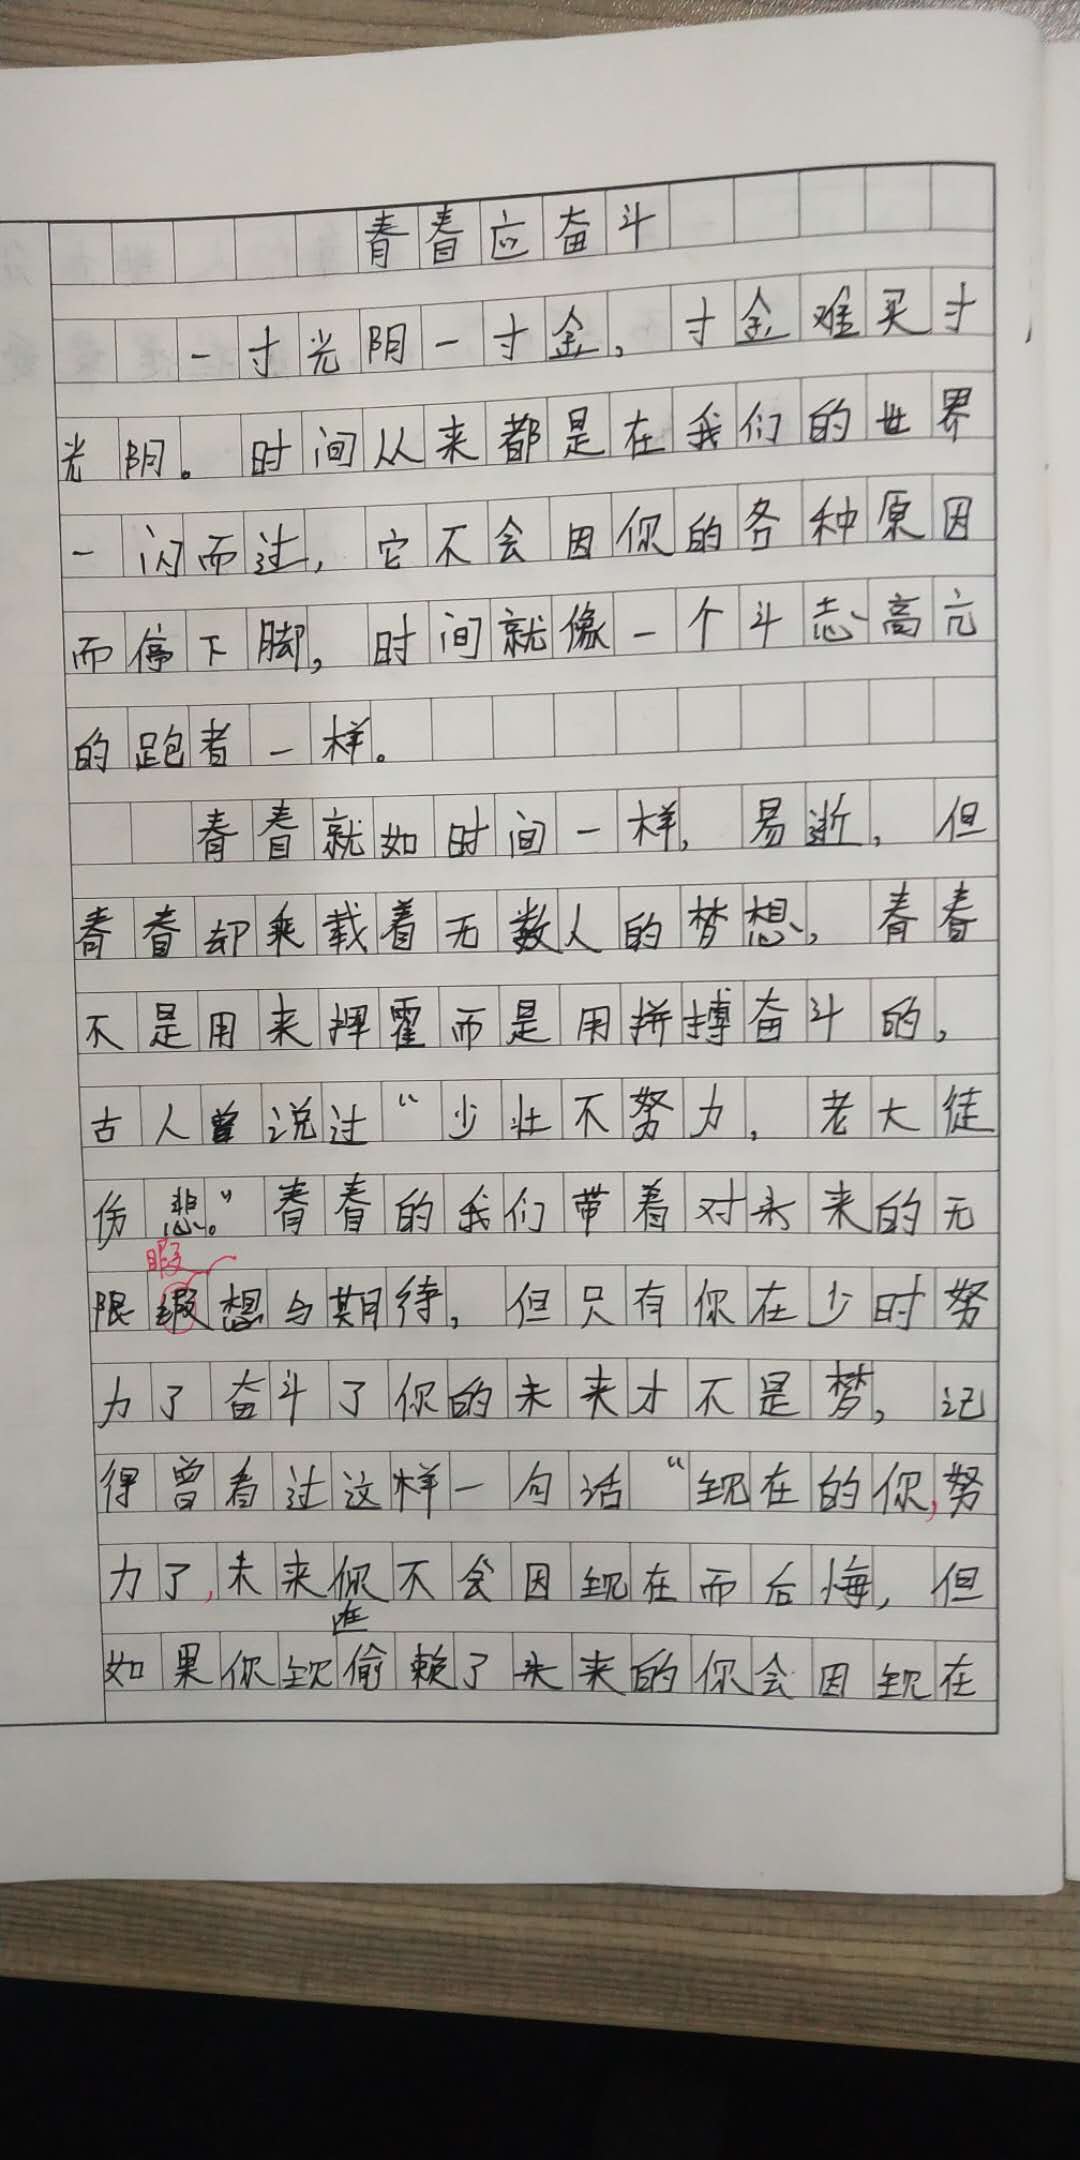 青春应奋斗
一寸光阴一寸金,寸金难买寸
光阴。时间从来都是在我们的世界
一闪而过,它不会因你的各种原因
而停下脚,时间就像一个斗志高亢
的跑者一样。
青春就如时间一样,易逝,但
青春却乘载着无数人的梦想,青春
不是用来挥霍而是用拼搏奋斗的,
古人曾说过“少壮不努力,老大徒
伤悲。”青春的我们带着对未来的无
暇
限瑕想与期待,但只有你在少时努
力了奋斗了你的未来才不是梦,记
得曾看过这样一句话“现在的你,努
力了,未来你不会因现在而后悔,但
在
如果你现偷赖了未来的你会因现在